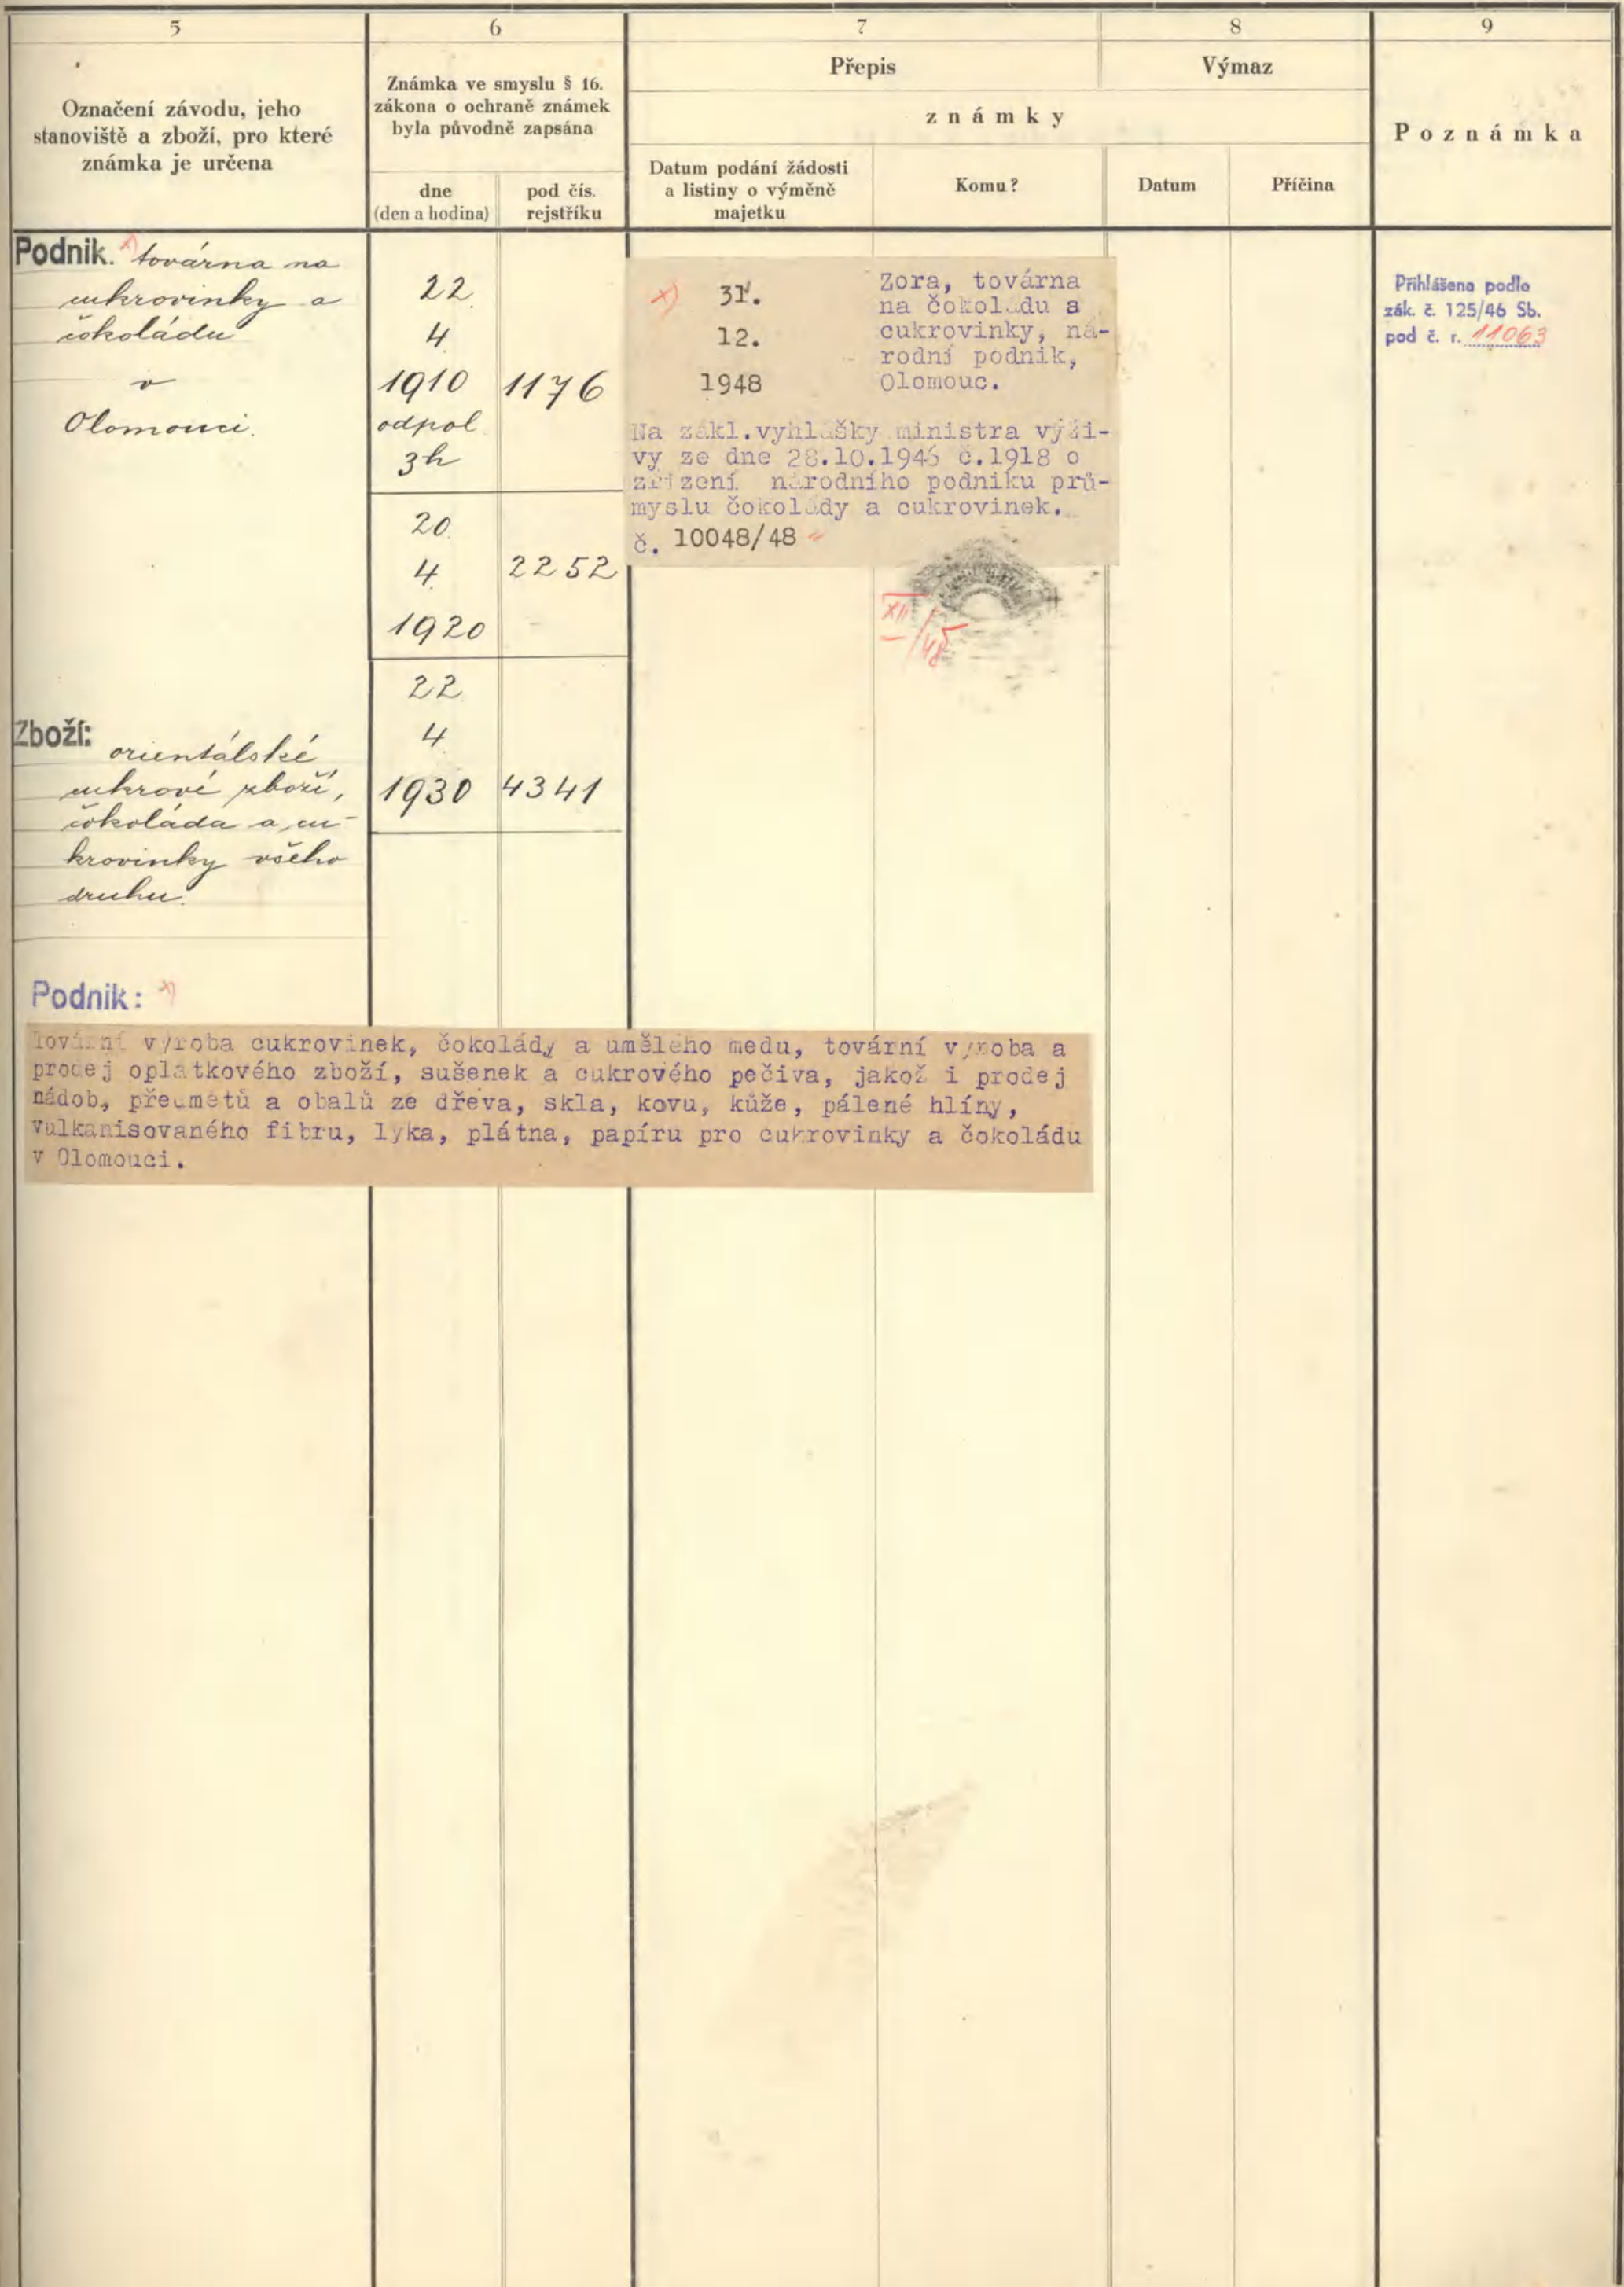 5
6
7
8
9
Označení závodu, jeho
stanoviště a zboží, pro které
známka je určena
Známka ve smyslu § 16.
zákona o ochraně známek
byla původně zapsána
dne
(den a hodina)
pod čís.
rejstříku
Přepis
Výmaz
známky
Datum podání žádosti
a listiny o výměně
majetku
Komu?
Datum
Příčina
Poznámka
Podnik. x) továrna na
cukrovinky a
čokoládu
v
Olomouci.
22.
4
1910 1176
odpol
3h
20.
4 2252
1920
22
4
1930 4341
x) 31.
12.
1948
Zora, továrna
na čokoládu a
cukrovinky, ná-
rodní podnik,
Olomouc.
Na zákl.vyhlášky ministra výži-
vy ze dne 28.10.1946 č.1918 o
zřízení národního podniku prů-
myslu čokolády a cukrovinek.
č. 10048/48
XII/48
Přihlášena podle
zák. č. 125/46 Sb.
pod č. r. 11063
Zboží:
orientálské
cukrové zboží,
čokoláda a cu-
krovinky všeho
druhu.
Podnik: x)
Tovární výroba cukrovinek, čokolády a umělého medu, tovární výroba a
prodej oplatkového zboží, sušenek a cukrového pečiva, jakož i prodej
nádob, předmětů a obalů ze dřeva, skla, kovu, kůže, pálené hlíny,
vulkanisovaného fibru, lyka, plátna, papíru pro cukrovinky a čokoládu
v Olomouci.